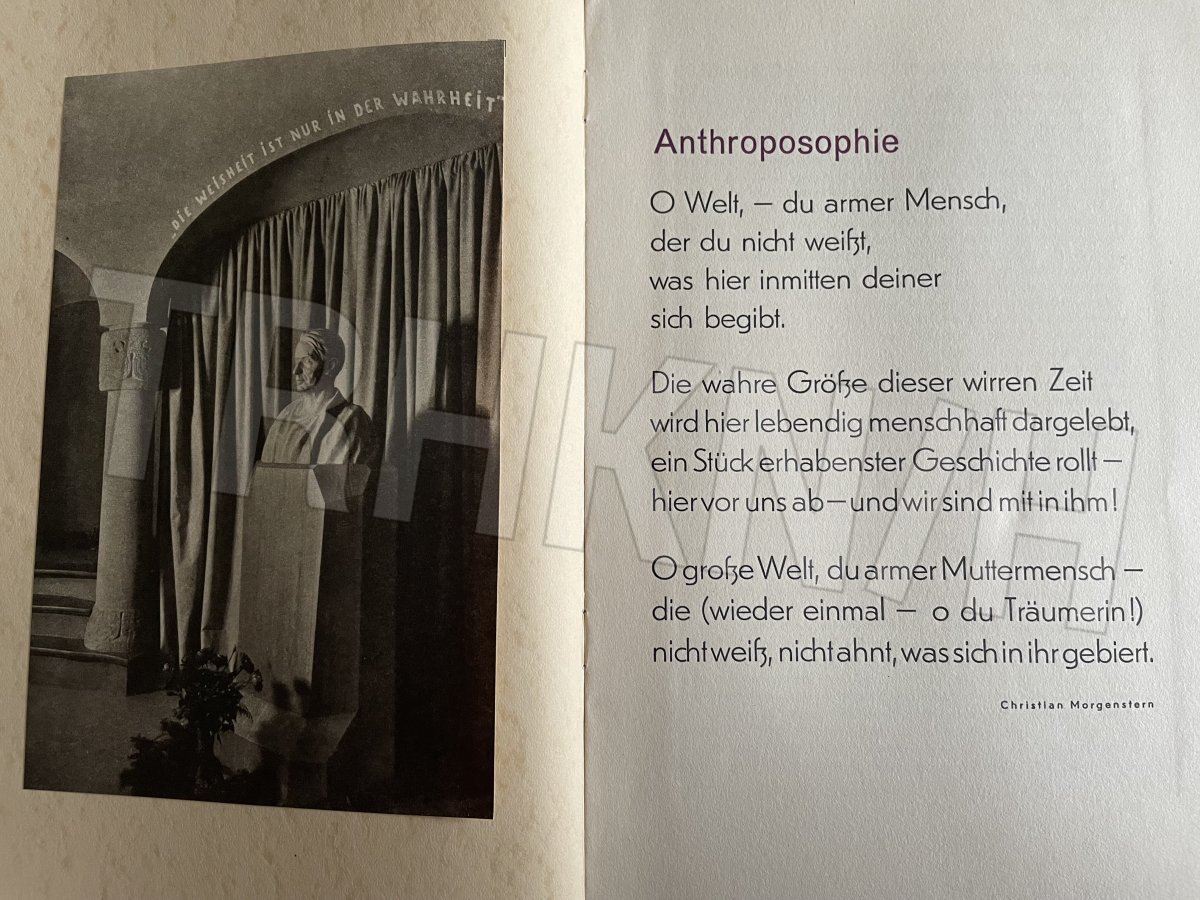 „DIE WEISHEIT IST NUR IN DER WAHRHEIT”
Anthroposophie
O Welt, — du armer Mensch,
der du nicht weißt,
was hier inmitten deiner
sich begibt.
Die wahre Größe dieser wirren Zeit
wird hier lebendig menschhaft dargelebt,
ein Stück erhabenster Geschichte rollt —
hier vor uns ab — und wir sind mit in ihm!
O große Welt, du armer Muttermensch —
die (wieder einmal — o du Träumerin!)
nicht weiß, nicht ahnt, was sich in ihr gebiert.
Christian Morgenstern